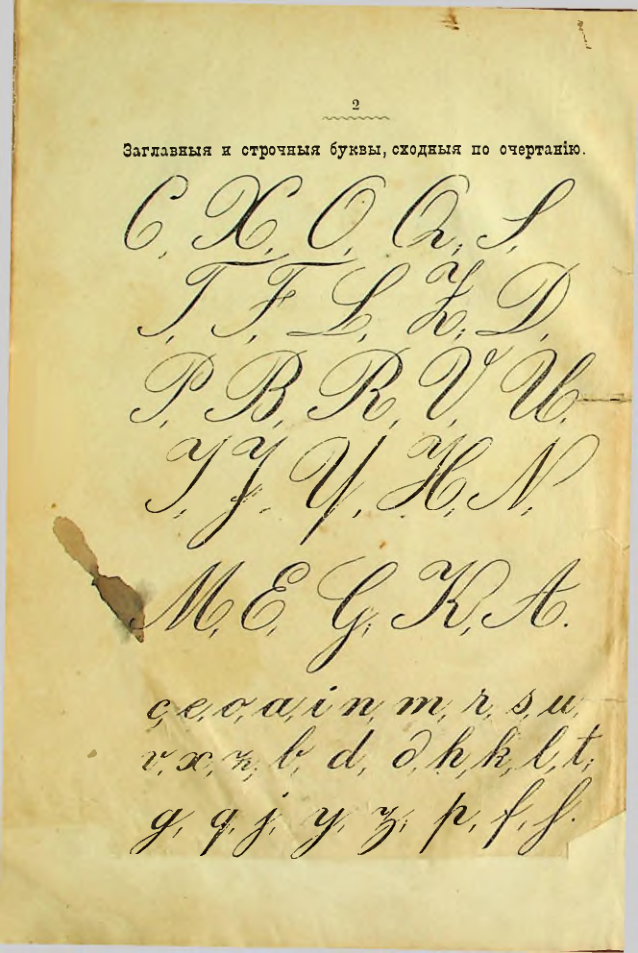 2
Заглавныя и строчныя буквы, сходныя по очертанію.
C, X, O, Q, S,
T, F, L, Z, D,
P, B, R, V, U,
I, J, Y, H, N,
M, E, G, K, A.
c, e, o, a, i n, m, r, s, u,
v, x, z, b, d, ∂, h, k, l, t,
g, q, j, y, z, p, f, ſ.